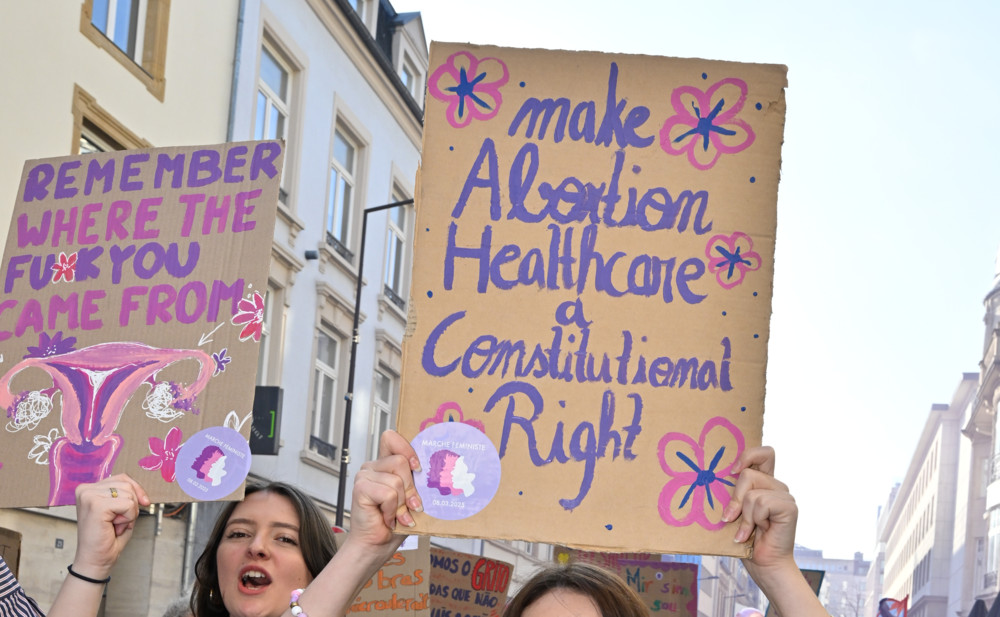 REMEMBER
WHERE THE
FU KYOU
CAME FROM
MARCHE FÉMINISTE
make
Abortion
Healthcare
a
Constitutional
Right
MARCHE FÉMINISTE
08.03.2025
OMOS O GRITO
DAS QUE NÃO
Mir sin